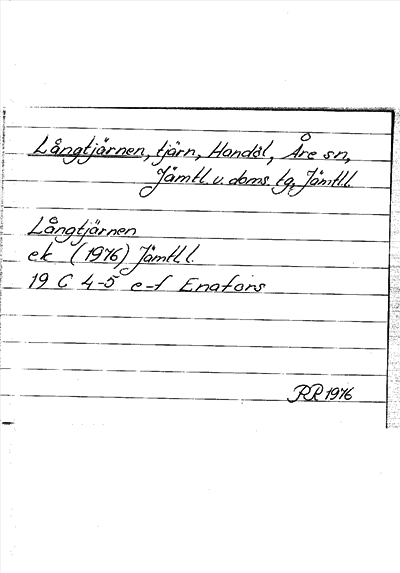 Långtjärnen, tjärn, Handöl, Åre sn,
Jämtl. v. doms. tg, Jämtl.l.
Långtjärnen
ek (1976) Jämtl.l.
19 C 4-5 e-f Enafors
RR 1976